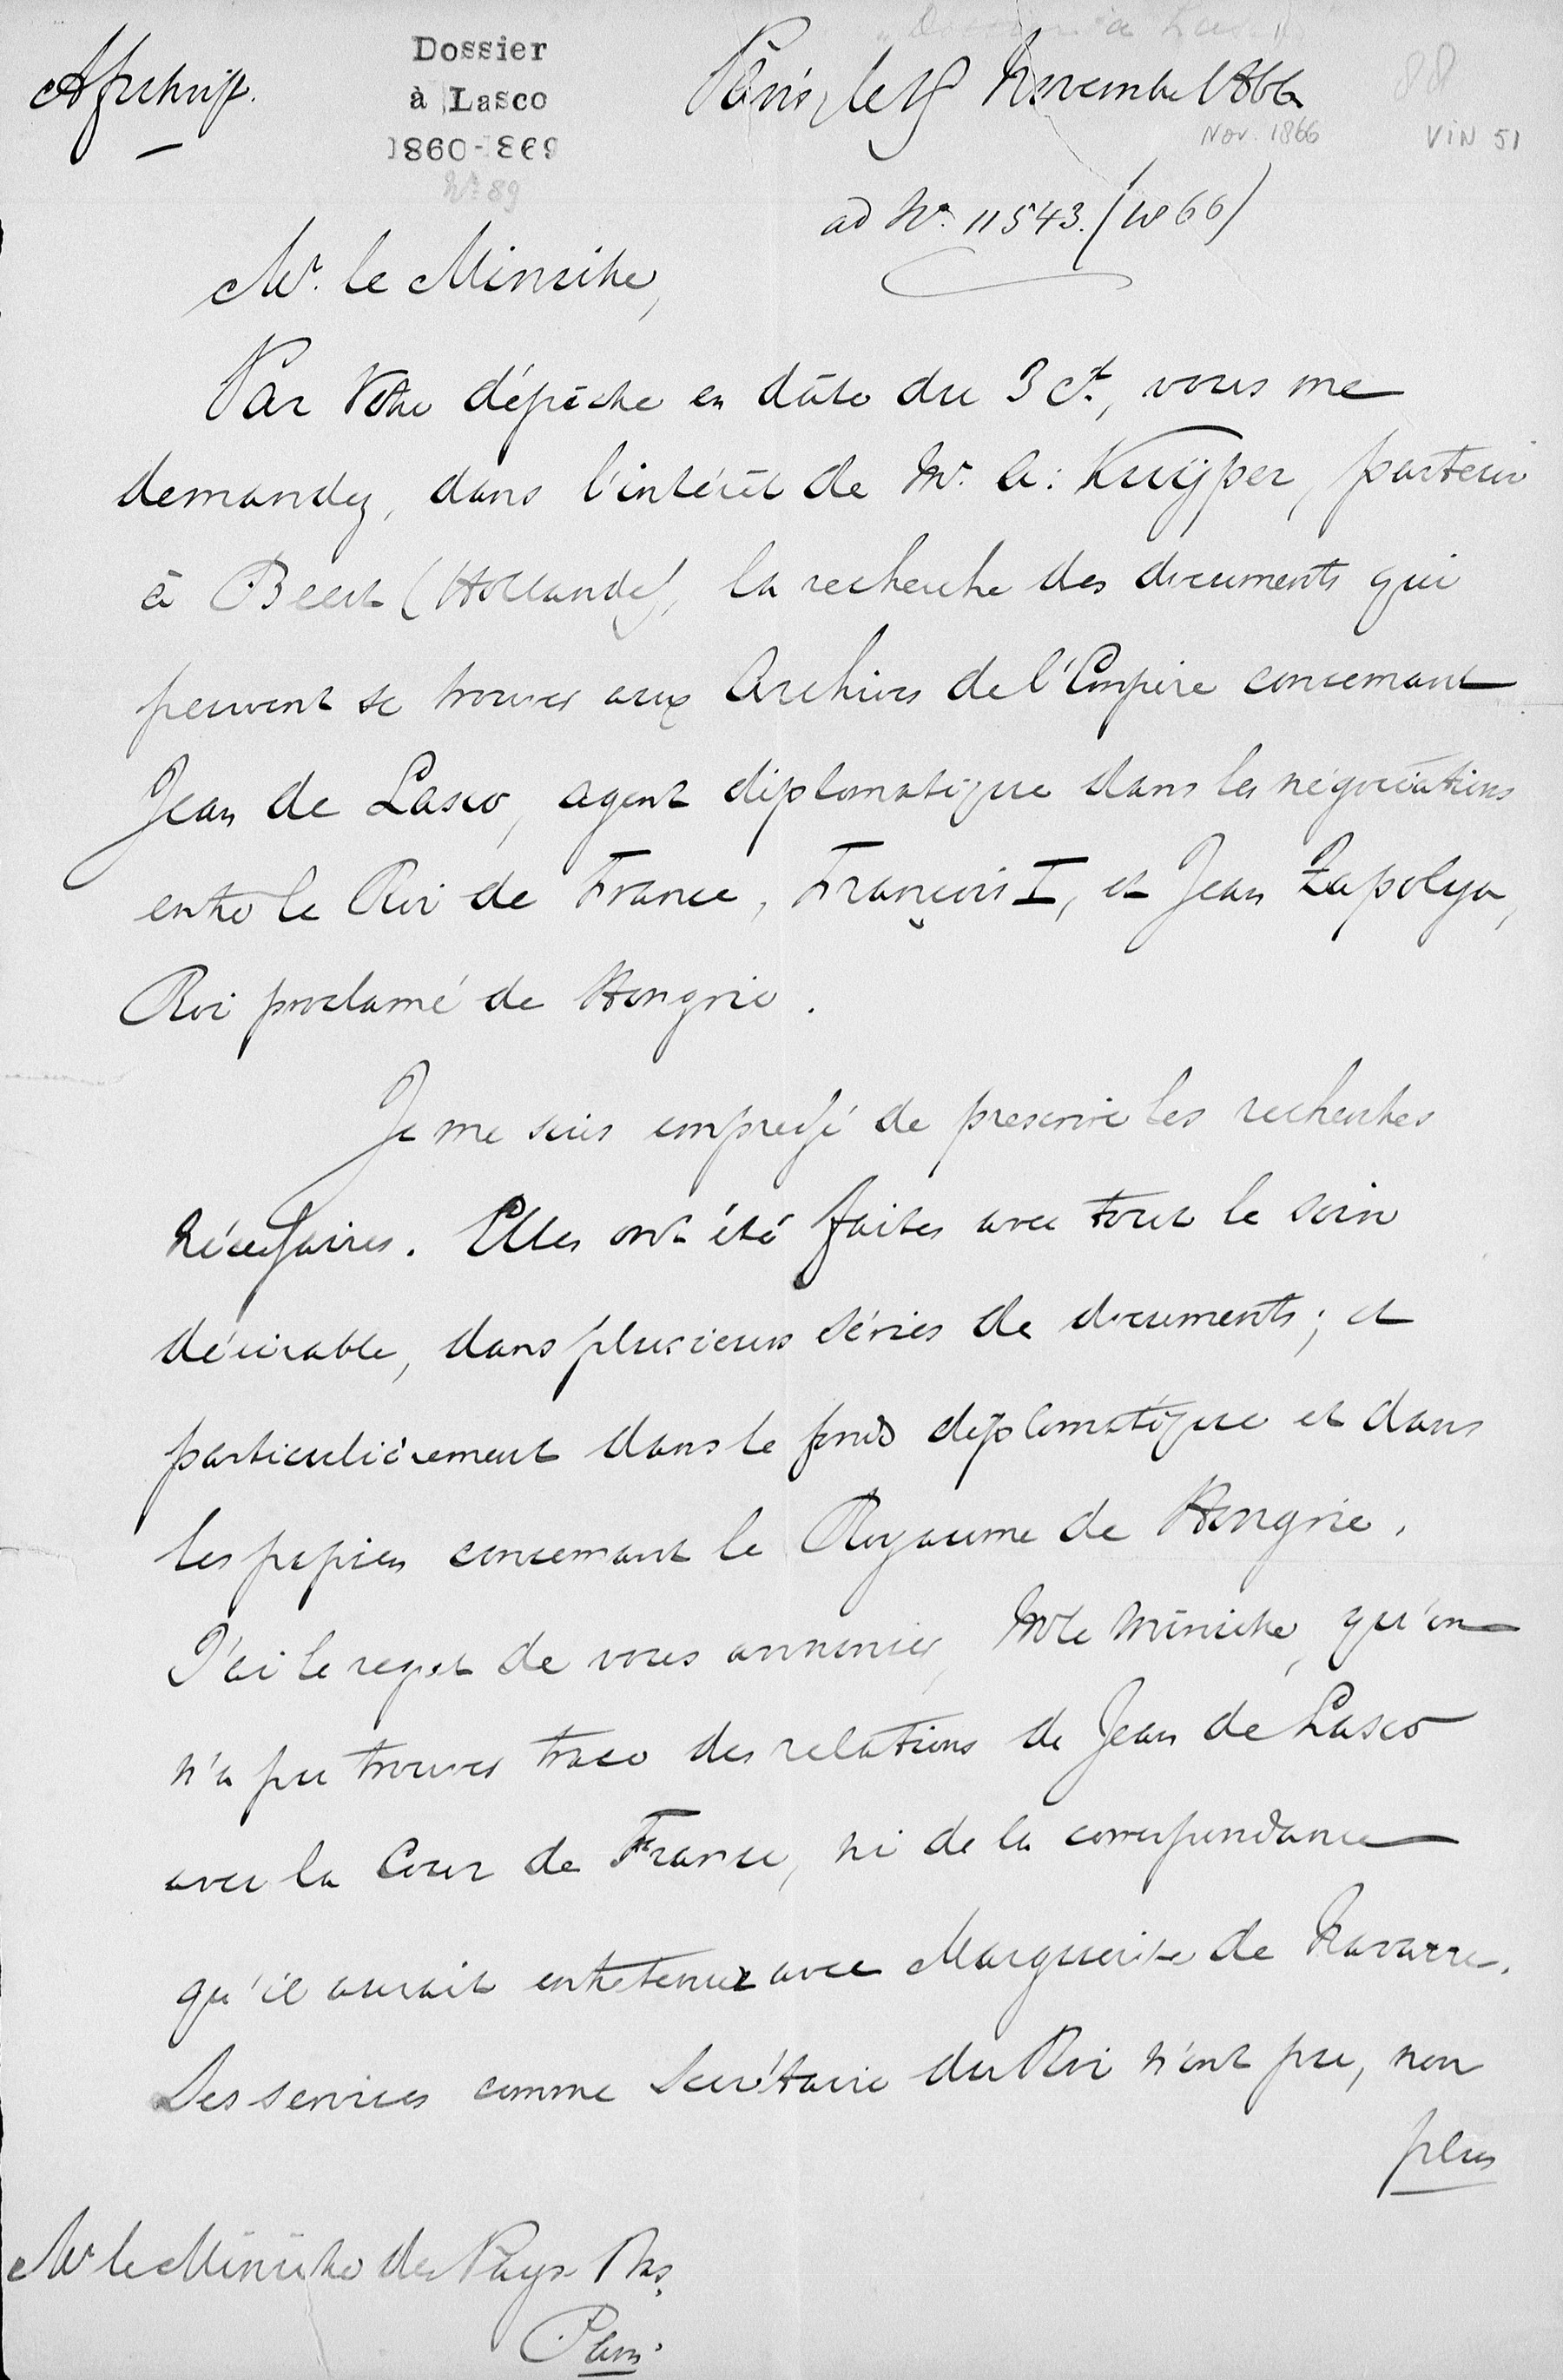 Afschrift.
Dossier
à Lasco
1860-1869
Nº 89
Paris, le Novembre 1866
Nov. 1866
88
VIN 51
ad Nº. 11543. (1866)
Mr. le Ministre,
Par Votre dépêche en dâte du 3 ct, vous me
demandez, dans l'intérêt de Mr. A: Kuÿper, pasteur
à Beest (Hollande), la recherche des documents qui
peuvent se trouver aux Archives de l'Empire concernant
Jean de Lasco, agent diplomatique dans les négociations
entre le Roi de France, François I, et Jean Zapolya,
Roi proclamé de Hongrie.
Je me suis empressé de prescrire les recherches
nécessaires. Elles ont été faites avec tout le soin
désirable, dans plusieurs séries de documents; et
particulièrement dans le fonds diplomatique et dans
les papiers concernant le Royaume de Hongrie.
J'ai le regret de vous annoncer, Mr le Ministre, qu'on
n'a pu trouver trace des relations de Jean de Lasco
avec la Cour de France, ni de la correspondance
qu'il aurait entretenue avec Marguerite de Navarre.
Ses services comme Secrétaire du Roi n'ont pu, non
plus
Mr le Ministre des Pays-Bas.
Paris.